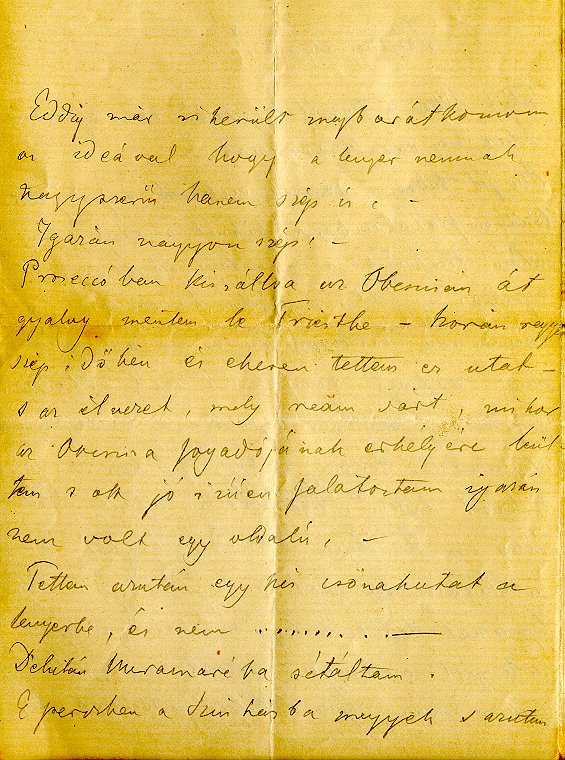 Eddig már sikerült megbarátkoznom
az ideával hogy a tenger nemcsak
nagyszerű hanem szép is. –
Igazán nagyon szép! –
Proseccóban kiszállva az Obcinán át
gyalog mentem le Triestbe – korán reggel
szép időben és ehesen tettem ez utat –
s az élvezet, mely reám várt, mikor
az Obcina fogadójának erkélyére kiül-
tem s ott jó izüen falatoztam igazán
nem volt egy oldalú, –
Tettem azután egy kis csónakutat a
tengerbe, és nem ......... –
Délután Miramaréba sétáltam.
E perczben a Szinházba megyek s azután